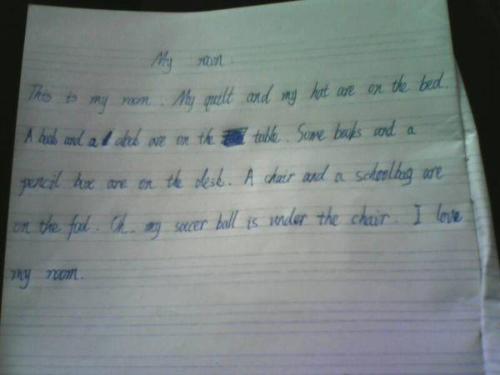 My room.
This is my room. My quilt and my hat are on the bed.
A and a are on the table. Some books and a
pencil box are on the desk. A chair and a schoolbag are
on the. Oh, my soccer ball is under the chair. I love
my room.